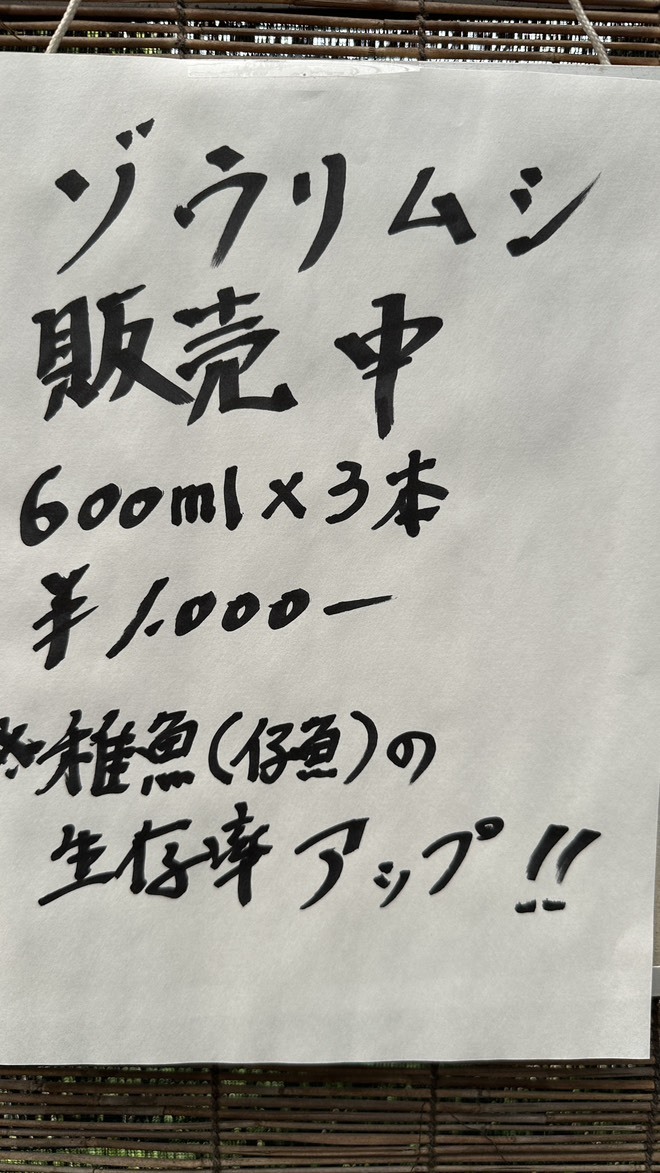 ゾウリムシ
販売中
600ml×3本
¥1.000ー
※稚魚(仔魚)の
生存率アップ!!